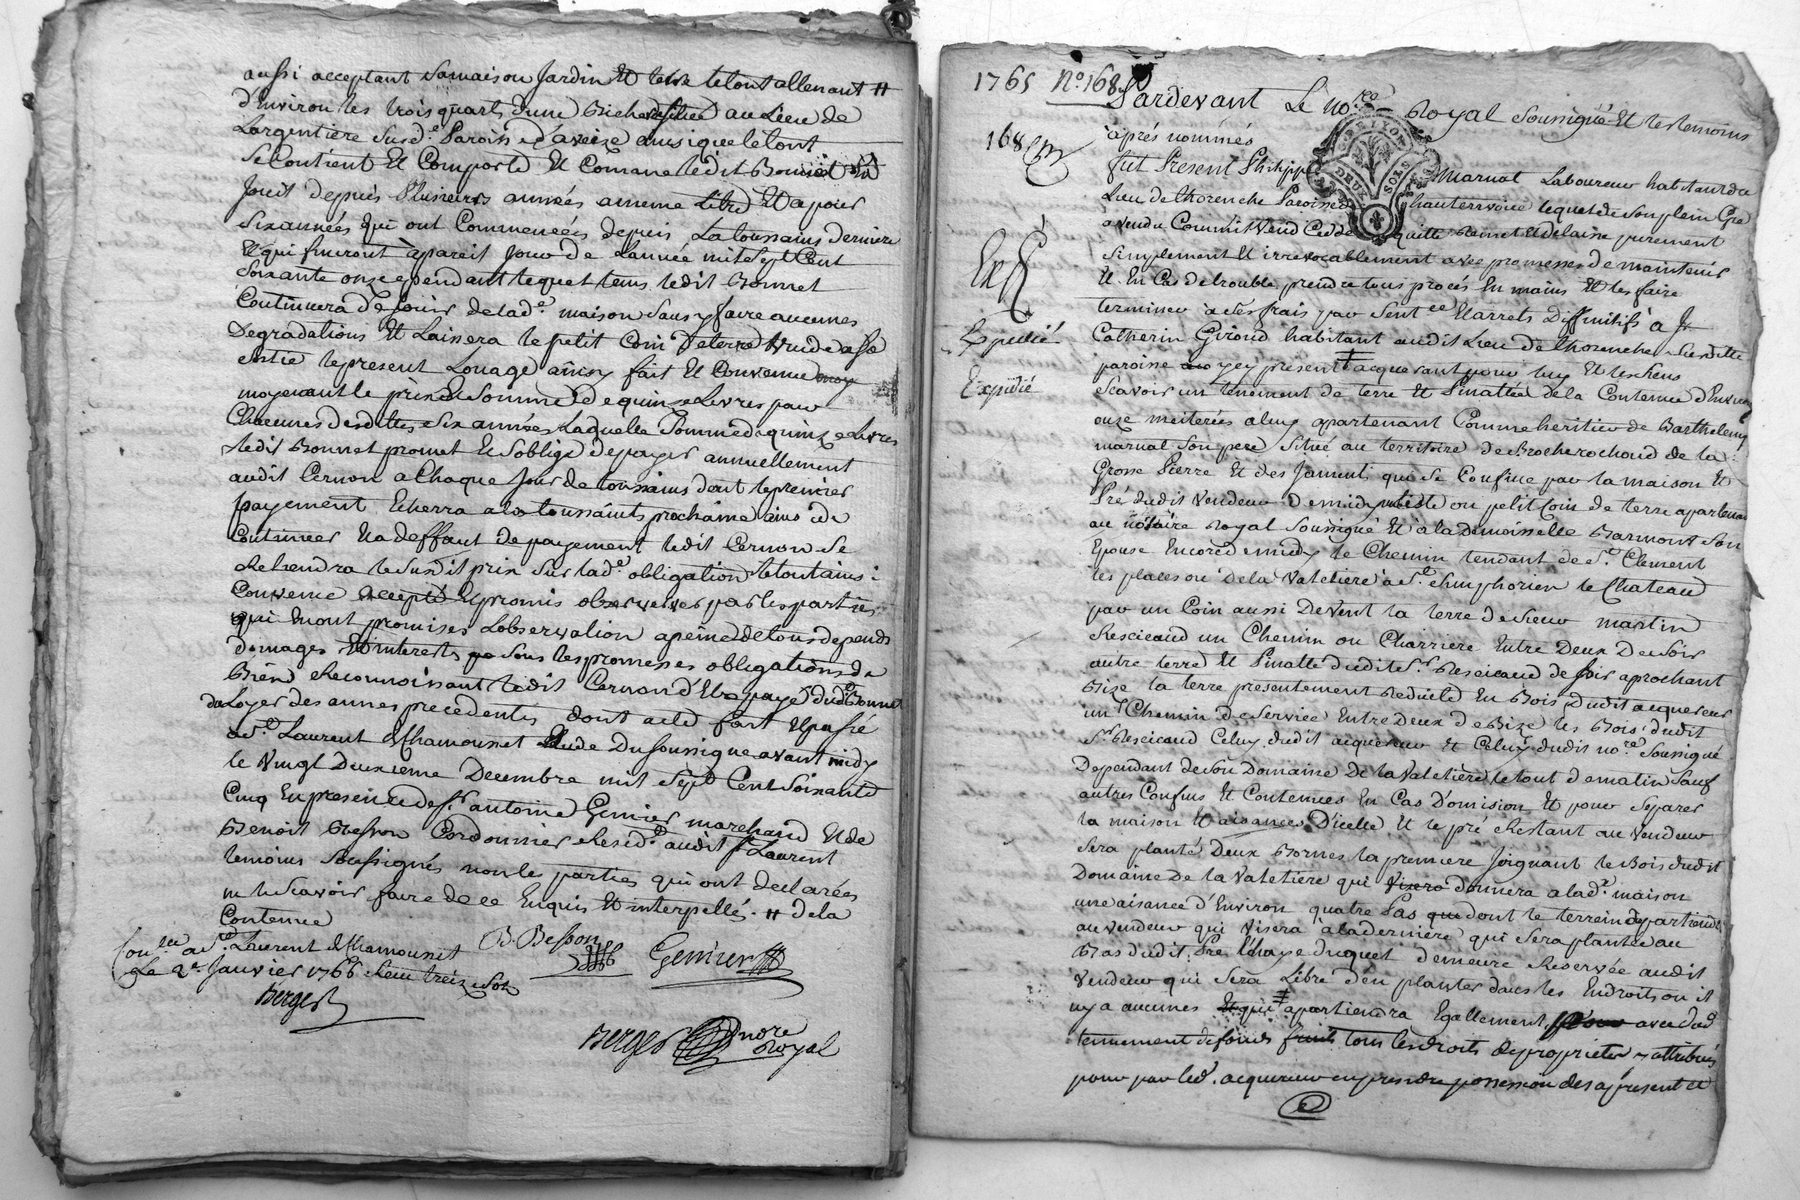 aussi acceptant sa maison Jardin Et terre le tout allenant #
d'Environ les trois quarts d'une Bicherée située au Lieu de
Largentière susd.e Paroisse d'aveize ainsi que le tout
se Contient Et Comporte Et Comme ledit Bonnet En
Jouit depuis Plusieurs années a meme titre Et a pour
six années qui ont Commencées depuis La toussains derniere
Et qui finiront à pareil Jour de L'année mil sept Cent
soixante onze pendant lequel tems ledit Bonnet
Continuera de Jouir de lad.e maison sans y faire aucunes
Degradations Et Laissera le petit Coin de terre vuide a sa
sortie le present Louage ainsy fait Et Convenu
moyenant le prix Et Somme de quinze Livres pour
Chacunes desdittes six années Laquelle Somme de quinze Livres
ledit Bonnet promet Et s'oblige de payer annuellement
audit Cernon a Chaque Jour de toussains dont le premier
payement Echerra a la toussaints prochaine ainsi de
Continuer Et a deffaut de payement ledit Cernon se
Retiendra le susdit prix sur lad.e obligation le tout ainsi
Convenu accepté Et promis observer par les parties
qui En ont promises L'observation a peine de tous depends
domages Et interests sous les promesses obligations de
Bien Reconnoissant ledit Cernon d'Etre payé dud.t Bonnet
des Loyer des annes precedentes dont acte fait Et passé
a S.t Laurent de Chamousset Etude Du soussigné avant midy
le Vingt Deuxieme Decembre mil sept Cent Soixante
Cinq En presence de s.r antoine Genier marchand Et de
Benoit Besson Cordonnier Resid.t audit s.t Laurent
temoins soussignés non les parties qui ont declarées
ne le scavoir faire de ce Enquis Et interpellé. # de la
Contenue
Con.lée a S.t Laurent de Chamousset
Le 2.e Janvier 1766 Reçu treize Sols
Berger
B. Besson
Genier
Berger nore
Royal
1765 N.o 168
Pardevant Le no.re Royal soussigné Et les temoins
168
aprés nommés
fut Present Philippe Marnat Laboureur habitant du
Lieu de thorenche Paroisse d'hauterivoire lequel de son plein Gré
a vendu Comme il vend Cedde quitte Remet Et delaisse purement
simplement Et irrevocablement avec promesses de maintenir
Et En Cas de trouble prendre tous procés En mains Et les faire
terminer a ses frais par Sent.ce Et arrets Diffinitifs a s.r
Expedié
Catherin Giroud habitant audit Lieu de thorenche susditte
paroisse icy present acquerant pour luy Et les siens
Expédié
scavoir un tenement de terre Et Pinattée de la Contenue d'Environ
onze meiterées a luy apartenant Comme heritier de Barthelemy
marnat son pere Situé au territoire de Rocherochoud de la
Grosse Pierre Et des Jamenti qui se Confine par la maison Et
Pré dudit vendeur De midy un reste ou petit Coin de terre apartenant
au notaire Royal soussigné Et à la Demoisselle Barmont son
Epouse Encore de midy le Chemin tendant de S.t Clement
les places ou de la Valetiere a S.t Simphorien le Chateau
par un Coin aussi De vent la terre de sieur martin
Rescicaud un Chemin ou Charriere Entre Deux De soir
autre terre Et Pinatte dudit s.r Rescicaud de soir aprochant
Bize la terre presentement Reduite En Bois dudit acquereur
un Chemin de Service Entre Deux de Bize les Bois dudit
s.r Rescicaud Celuy dudit acquereur Et Celuy dudit no.re Soussigné
Dependant de Son Domaine De la Valetière le tout de matin Sauf
autres Confins Et Contenues En Cas D'omission Et pour separer
la maison Et aisances D'icelle Et le pré Restant au vendeur
Sera planté Deux Bornes la premiere Joignant le Bois dudit
Domaine De la Valetière qui donnera a lad.e maison
une aisance d'Environ quatre Pas dont le terrein apartiendra
au vendeur qui visera à la derniere qui Sera plantée au
Bas dudit Pré l'haye duquel demeure Reservée audit
vendeur qui Sera Libre d'En planter dans les Endroits ou il
n'y a aucunes apartiendra Egallement avec led.
tennement de fonds tous les droits de proprieter y attribués
pour par led. acquereur en prendre possession des a present et